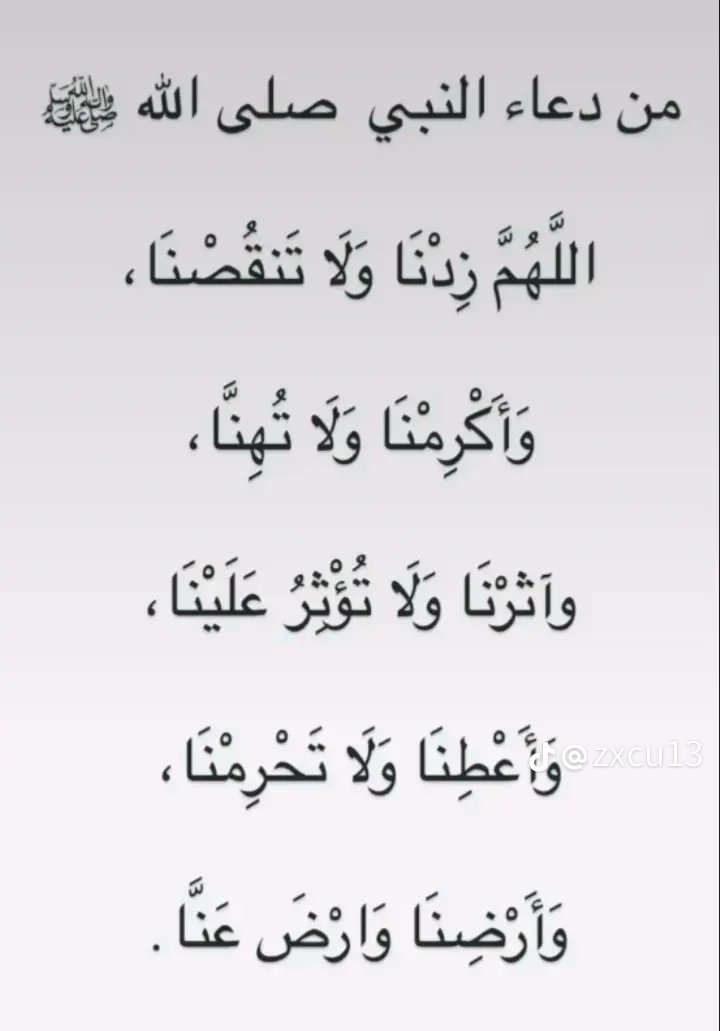 من دعاء النبي صلى الله ﷺ
اللَّهُمَّ زِدْنَا وَلَا تَنقُصْنَا،
وَأَكْرِمْنَا وَلَا تُهِنَّا،
وآثرْنَا وَلَا تُؤْثِرُ عَلَيْنَا،
وَأَعْطِنَا وَلَا تَحْرِمْنَا،
@zxcu13
وَأَرْضِنَا وَارْضَ عَنَّا.